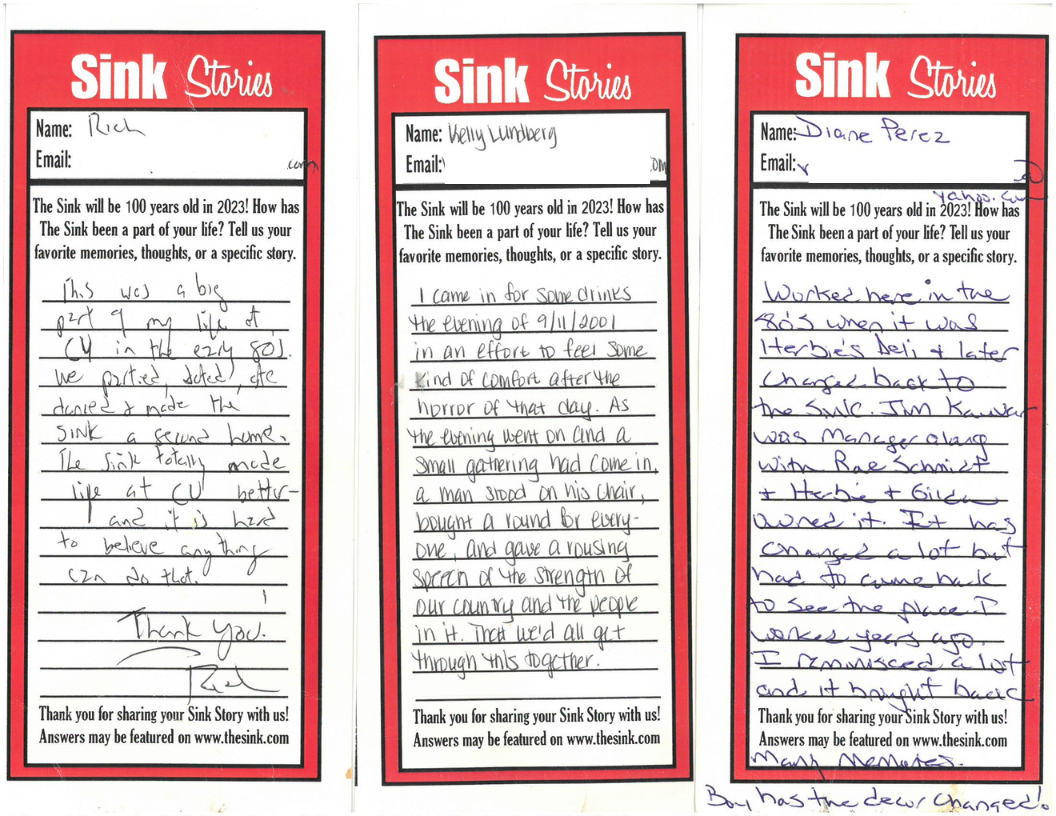 Sink Stories
Name: Rich
Email:
.com
The Sink will be 100 years old in 2023! How has
The Sink been a part of your life? Tell us your
favorite memories, thoughts, or a specific story.
This was a big
part of my life at
CU in the early 80s.
We partied, dated, ate
danced & made the
SINK a second home.
The Sink totally made
life at CU better-
and it is hard
to believe anything
can do that.
Thank you.
Rich
Thank you for sharing your Sink Story with us!
Answers may be featured on www.thesink.com
Sink Stories
Name: Kelly Lundberg
Email:
om
The Sink will be 100 years old in 2023! How has
The Sink been a part of your life? Tell us your
favorite memories, thoughts, or a specific story.
I came in for some drinks
the evening of 9/11/2001
in an effort to feel some
kind of comfort after the
horror of that day. As
the evening went on and a
small gathering had come in,
a man stood on his chair,
bought a round for every-
one, and gave a rousing
speech of the strength of
our country and the people
in it. That we'd all get
through this together.
Thank you for sharing your Sink Story with us!
Answers may be featured on www.thesink.com
Sink Stories
Name: Diane Perez
Email:
@
yahoo.com
The Sink will be 100 years old in 2023! How has
The Sink been a part of your life? Tell us your
favorite memories, thoughts, or a specific story.
Worked here in the
80's when it was
Herbie's Deli & later
changed back to
the Sink. Jim
was Manager along
with Rae Schmidt
& Herbie & Gilda
owned it. It has
changed a lot but
had to come back
to see the place I
worked years ago.
I reminisced a lot
and it brought back
Thank you for sharing your Sink Story with us!
Answers may be featured on www.thesink.com
Many Memories.
Boy has the decor changed!